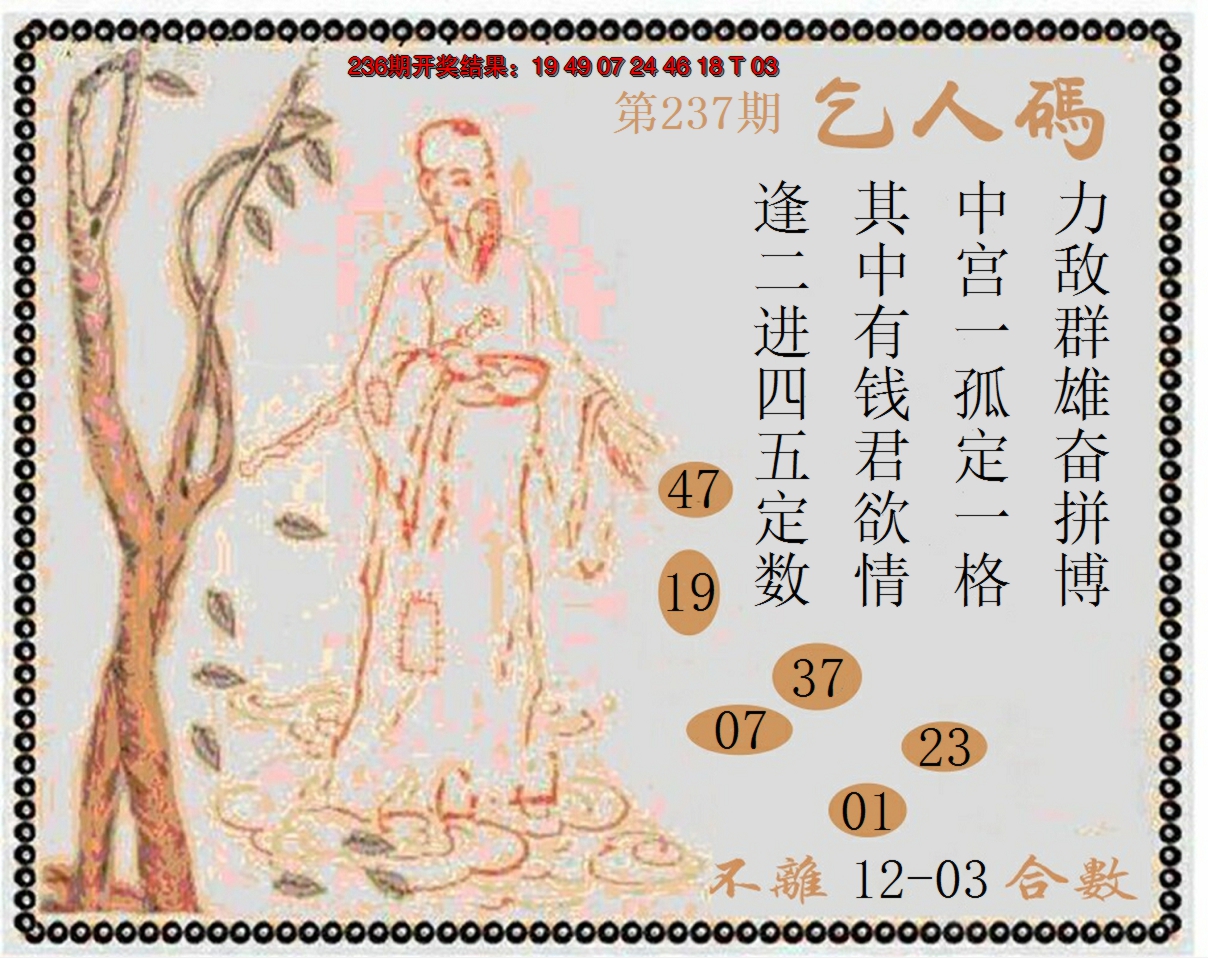 236期开奖结果：19 49 07 24 46 18 T 03
第237期 乞人碼
力敌群雄奋拼博
中宫一孤定一格
其中有钱君欲情
逢二进四五定数
47
19
37
07
23
01
不離 12-03 合數